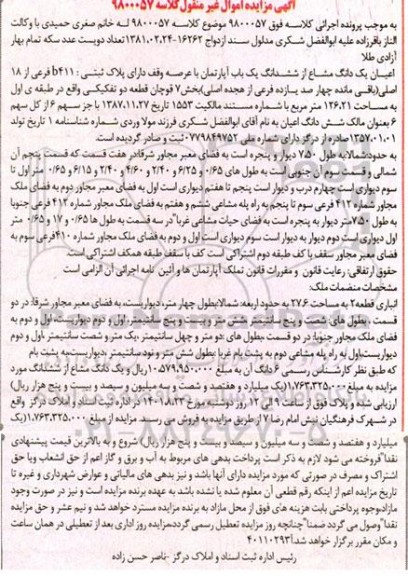 آگهی مزایده اموال غیر منقول کلاسه ۹۸۰۰۰۵۷
به موجب پرونده اجرائی کلاسه فوق ۹۸۰۰۰۵۷ موضوع کلاسه ۹۸۰۰۰۵۷ له خانم صغری حمیدی با وکالت
الناز باقرزاده علیه ابوالفضل شکری مدلول سند ازدواج ۱۶۲۶۲-۱۳۸۱،۰۲،۲۴ تعداد دویست عدد سکه تمام بهار
آزادی طلا
اعیان یک دانگ مشاع از ششدانگ یک باب آپارتمان با عرصه وقف دارای پلاک ثبتی : b۴۱۱ فرعی از ۱۸
اصلی(باقی مانده چهار صد یازده فرعی از هجده اصلی)بخش۷ قوچان قطعه دو تفکیکی واقع در طبقه ی اول
به مساحت ۱۲۶،۲۱ متر مربع با شماره مستند مالکیت ۱۵۵۳ تاریخ ۱۳۸۷،۱۱،۲۷ با جز سهم ۶ از کل سهم
۶ بعنوان مالک شش دانگ اعیان به نام آقای ابوالفضل شکری فرزند مولا وردی شماره شناسنامه ۱ تاریخ تولد
۱۳۵۷،۰۱،۰۱ صادره از درگز دارای شماره ملی ۰۷۷۹۸۴۹۷۵۲ ثبت و صادر گردیده است.
به حدود:شمالا:به طول ۷،۵۰ دیوار و پنجره است به فضای معبر مجاور شرقا:در هفت قسمت که قسمت پنجم آن
شمالی و قسمت سوم آن جنوبی است به طول های ۰،۶۵ و ۶،۲۵ و ۲،۴۰ و ۴،۶۰ و ۲،۴۰ و ۶،۱۵ و ۰،۶۵ متر اول تا
سوم دیواری است چهارم درب و دیوار است پنجم تا هفتم دیواری است اول به فضای معبر مجاور دوم به فضای ملک
مجاور شماره ۴۱۲ فرعی سوم تا پنجم به راه پله مشاعی ششم و هفتم به فضای ملک مجاور شماره ۴۱۲ فرعی جنوبا
به طول ۷،۵۰متر دیوار به پنجره است به فضای حیات مشاعی غربا"در سه قسمت به طول ها ۰،۶۵ و ۱۷ و ۰،۶۵ متر
اول دیواری است دوم دیوار به دیوار است سوم دیواری است اول و دوم به فضای ملک مجاور شماره ۴۱۰فرعی سوم به
فضای معبر مجاور سقف با کف طبقه دوم اشتراکی است کف با سقف طبقه همکف اشتراکی است
حقوق ارتفاقی: رعایت قانون و مقررات قانون تملک آپارتمان ها و آئین نامه اجرائی آن الزامی است
مشخصات منضمات ملک:
انباری قطعه۲ به مساحت ۲۷،۶ به حدود اربعه: شمالا:بطول چهار متر، دیواریست، به فضای معبر مجاور شرقا: در دو
قسمت ،بطول های شصت و پنج سانتیمتر شش متر و بیست و پنج سانتیمتر،اول و دوم دیواریست،اول و دوم به
فضای ملک مجاور جنوبا: در دو قسمت ،بطول های :دو متر و چهل سانتیمتر ،یک متر و شصت سانتیمتر اول و دوم
دیواریست،اول به راه پله مشاعی دوم به پشت بام غربا :بطول شش متر و نود سانتیمتر ،دیواریست،به پشت بام
که طبق نظر کارشناس رسمی ۶ دانگ آن به مبلغ ۱۰،۵۷۹،۹۵۰،۰۰۰ریال و یک دانگ مشاع از ششدانگ مورد
مزایده به مبلغ ۱،۷۶۳،۳۲۵،۰۰۰(یک میلیارد و هفتصد و شصت و سه میلیون و سیصد و بیست و پنج هزار ریال)
ارزیابی شده و پلاک فوق از ساعت ۹ الی ۱۲ روز دوشنبه مورخ ۱۴۰۱،۰۸،۲۳ در اداره ثبت اسناد و املاک درگز واقع
در شهرک فرهنگیان نبش امام رضا ۷ از طریق مزایده به فروش می رسد. مزایده از مبلغ ۱،۷۶۳،۳۲۵،۰۰۰(یک
میلیارد و هفتصد و شصت و سه میلیون و سیصد و بیست و پنج هزار ریال) شروع و به بالاترین قیمت پیشنهادی
نقدا"فروخته می شود لازم به ذکر است پرداخت بدهی های مربوط به آب و برق و گاز اعم از حق انشعاب ویا حق
اشتراک و مصرف در صورتی که مورد مزایده دارای آنها باشد و نیز بدهی های مالیاتی و عوارض شهرداری و غیره تا
تاریخ مزایده اعم از اینکه رقم قطعی آن معلوم شده یا نشده باشد به عهده برنده مزایده است و نیز در صورت وجود
مازاد،وجوه پرداختی بابت هزینه های فوق از محل مازاد به برنده مزایده مسترد خواهد شد و نیم عشر و حق مزایده
نقدا"وصول می گردد ضمنا"چنانچه روز مزایده تعطیل رسمی گردد،مزایده روز اداری بعد از تعطیلی در همان ساعت
و مکان مقرر برگزار خواهد شد/۴۰۱۱۰۲۹۳
رئیس اداره ثبت اسناد و املاک درگز -ناصر حسن زاده